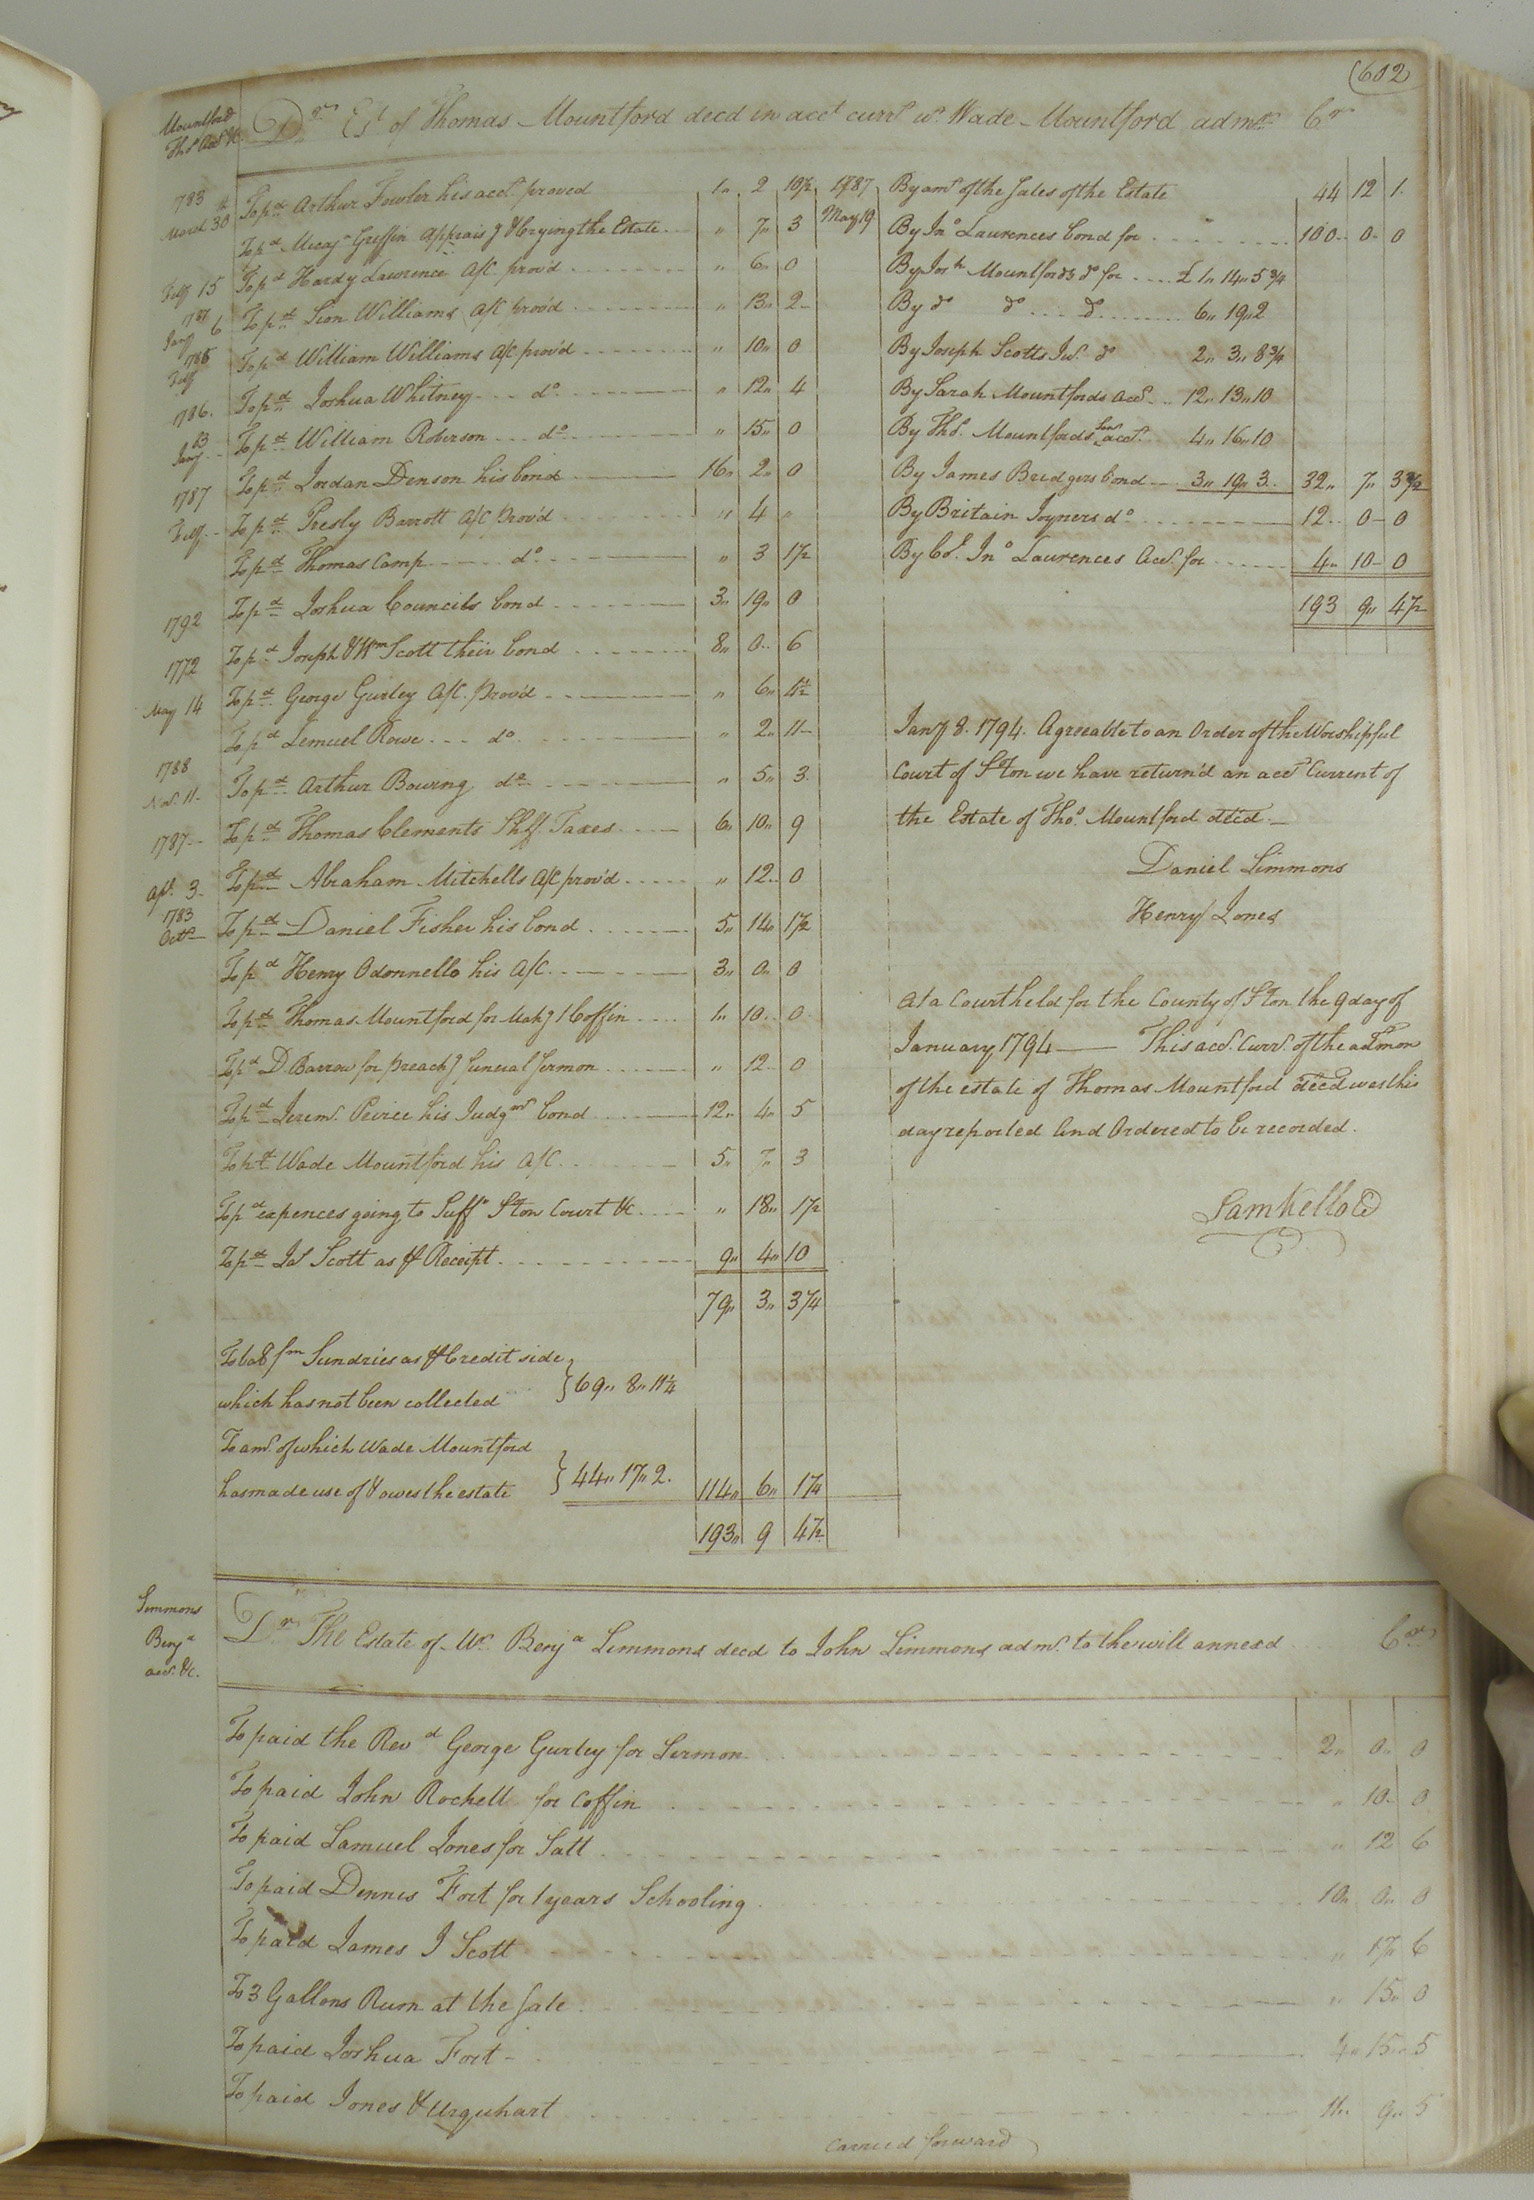 (602
Mountford
Thos Acct &c
Dr Est of Thomas Mountford decd in acct currt wt Wade Mountford admr Cr
783 To pd Arthur Fowler his acct proved 1 " 2 10½
March 30th To pd Micaj Griffin Apprais'g & Crying the Estate " 7 " 3
Feby 15 To pd Hardy Lawrence A/c prov'd " 6 " 0
1787 Jany 6 To pd Sion Williams A/c prov'd " 13 " 2
1785 Feby To pd William Williams A/c prov'd " 10 " 0
1786. To pd Joshua Whitney do " 12 " 4
83 Jany To pd William Roberson do " 15 " 0
1787 To pd Jordan Denson his bond 16 " 2 " 0
Feby To pd Presly Barrott A/c Prov'd " 4 "
To pd Thomas Camp do " 3 1½
1792 To pd Joshua Councils bond 3 " 19 " 0
1772 To pd Joseph & Wm Scott their bond 8 " 0 " 6
May 14 To pd George Gurley A/c. Prov'd " 6 "
To pd Lemuel Rowe do " 2 " 11
1788 Nov. 11 To pd Arthur Bowing do " 5 " 3
1787 To pd Thomas Clements Shff Taxes 6 " 10 " 9
Apl. 3 To pd Abraham Mitchells A/c prov'd " 12 " 0
1783 Octr To pd Daniel Fisher his bond 5 " 14 " 1½
To pd Henry Odonnello his A/c 3 " 0 " 0
To pd Thomas Mountford for Mak'g 1 Coffin 1 " 10 " 0
To pd D Barrow for preach'g funeral Sermon " 12 " 0
To pd Jerem. Peirce his Judgmt bond 12 " 4 " 5
To pd Wade Mountford his A/c 5 " 7 " 3
To pd expences going to Suffo Ston Court &c " 18 " 1½
To pd Jas Scott as Receipt 9 " 4 " 10
79 " 3 " 3¼
To bal fm Sundries as Credit side
which has not been collected } 69 " 8 " 11¼
To amt of which Wade Mountford
has made use of & owes the estate } 44 " 17 " 2. 114 " 6 " 1¼
193 " 9 4½
1787 By amt of the Sales of the Estate 44 12 1
May 19 By Jno Laurences bond for 100 " 0 " 0
By Josh Mountfords do for £ 1 " 14 " 5¾
By do do do 6 " 19 " 2
By Joseph Scotts Jur. do 2 " 3 " 8¾
By Sarah Mountfords acct 12 " 13 " 10
By Thos. Mountfords Senr acct. 4 " 16 " 10
By James Bridgers bond 3 " 19 " 3 32 " 7 " 3½
By Britain Joyners do 12 " 0 " 0
By Col. Jno Laurences Acct for 4 " 10 " 0
193 9 " 4½
Jany 8. 1794. Agreeable to an Order of the Worshipful
Court of Ston we have return'd an acct Current of
the Estate of Thos. Mountford decd
Daniel Simmons
Henry Jones
At a Court held for the County of Ston the 9 day of
January 1794 This acct. Curr. of the admon
of the estate of Thomas Mountford decd was this
day reported and Ordered to be recorded.
Sam Kello CC
Simmons
Benja
acct. &c.
Dr The Estate of Mr Benja Simmons decd to John Simmons admr. to the will annexd Cr
To paid the Revd George Gurley for Sermon 2 " 0 " 0
To paid John Rochell for Coffin " 10 " 0
To paid Samuel Jones for Salt " 12 6
To paid Dennis Fort for 1 years Schooling 10 " 0 " 0
To paid James J Scott " 17 " 6
To 3 Gallons Rum at the Sale " 15 " 0
To paid Joshua Fort 4 " 15 " 5
To paid Jones & Urquhart 11 " 9 " 5
Carried forward